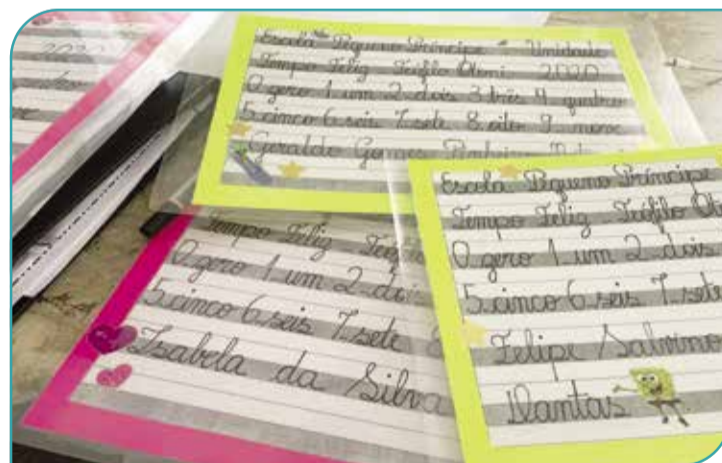 2020
Escola Pequeno Príncipe Unidade
Tempo Feliz Teófilo Otoni 2020
0.zero 1.um 2.dois 3.três 4.quatro
5.cinco 6.seis 7.sete 8.oito 9.nove
Geraldo Gomes Pinheiro
Tempo Feliz
0.zero 1.um 2.dois
5.cinco 6.seis 7.sete 8
Isabela da Silva
Escola Pequeno Príncipe
Tempo Feliz Teófilo Oto
0.zero 1.um 2.dois
5.cinco 6.seis 7.sete
Felipe Salvino
Dantas